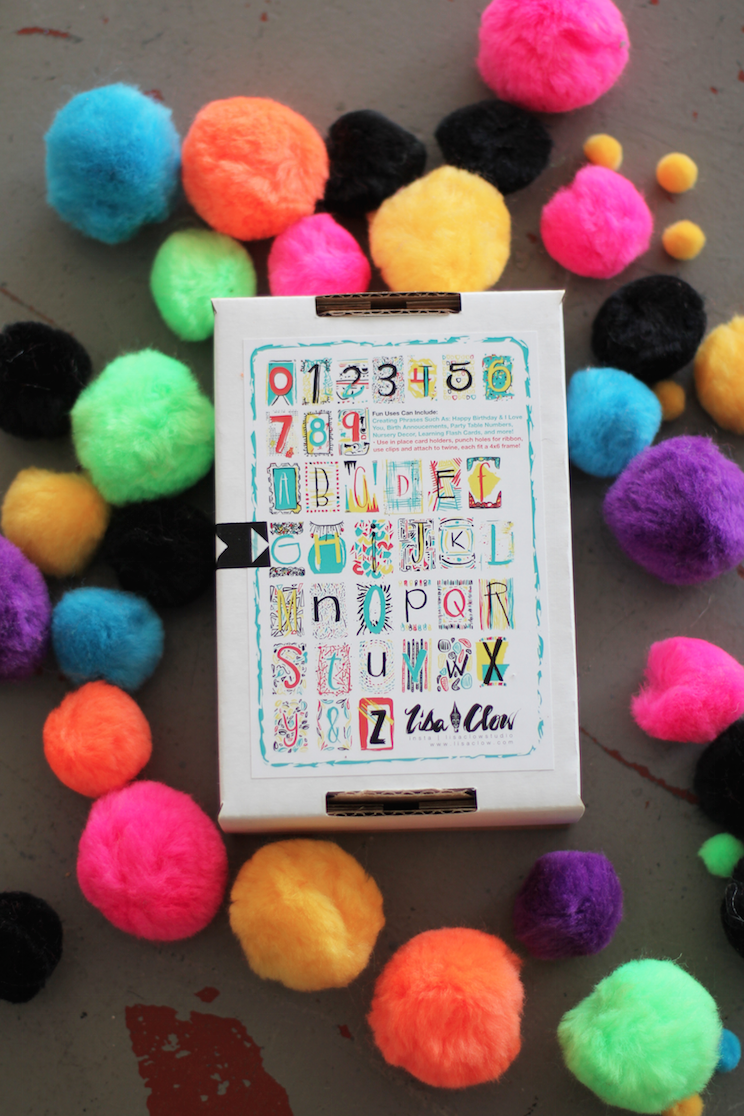 0 1 2 3 4 5 6
7 8 9
Fun Uses Can Include:
Creating Phrases Such As: Happy Birthday & I Love
You, Birth Annoucements, Party Table Numbers,
Nursery Decor, Learning Flash Cards, and more!
- Use in place card holders, punch holes for ribbon,
use clips and attach to twine, each fit a 4x6 frame!
A B C D E F
G H i J K L
M n O p Q R
S t u V W X
y & Z Lisa Clow
insta | lisaclowstudio
www.lisaclow.com